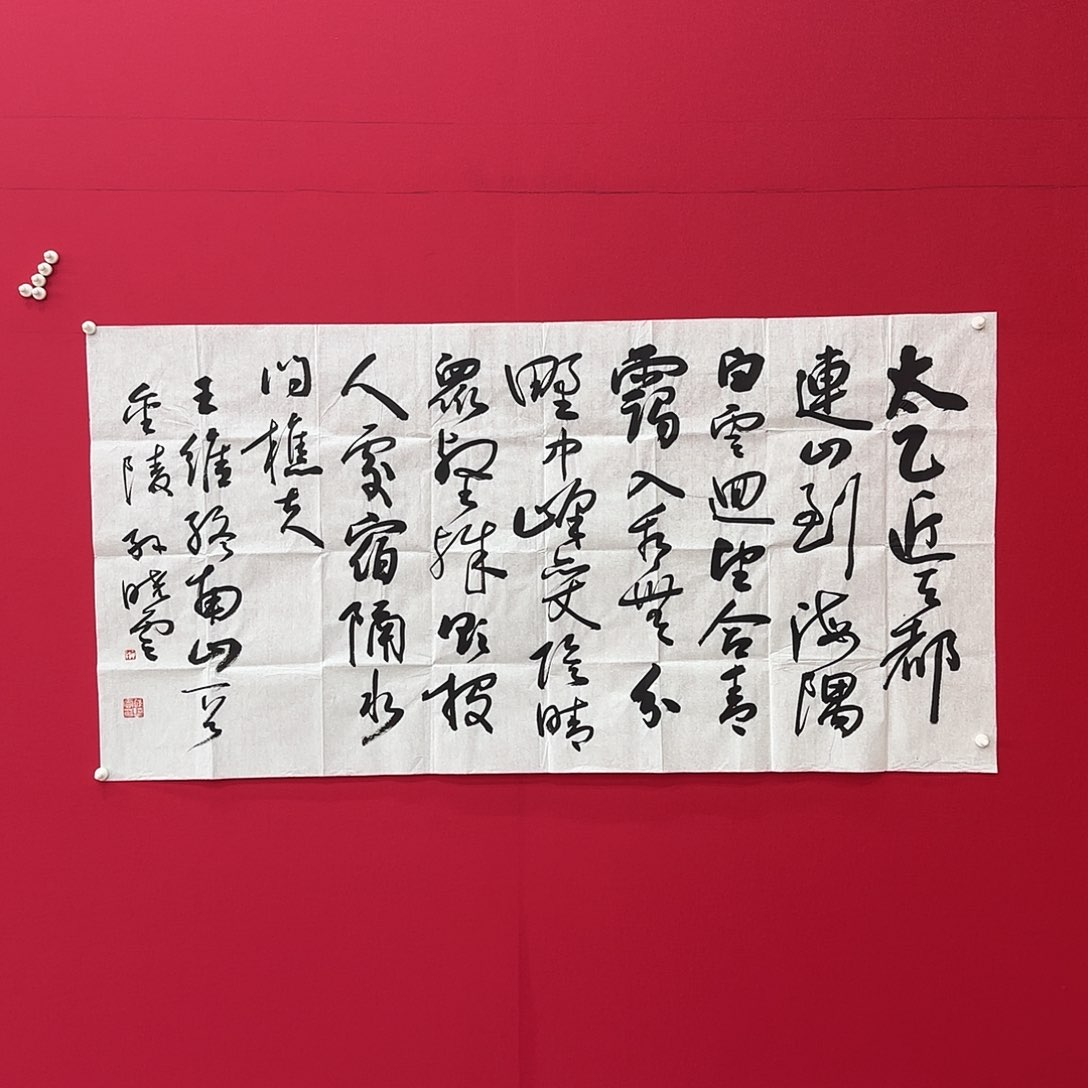 太乙近天都
連山到海隅
白雲迴望合青
靄入看無分
野中峰變陰晴
眾壑殊欲投
人處宿隔水
問樵夫
王維終南山一首
金陵孫曉雲